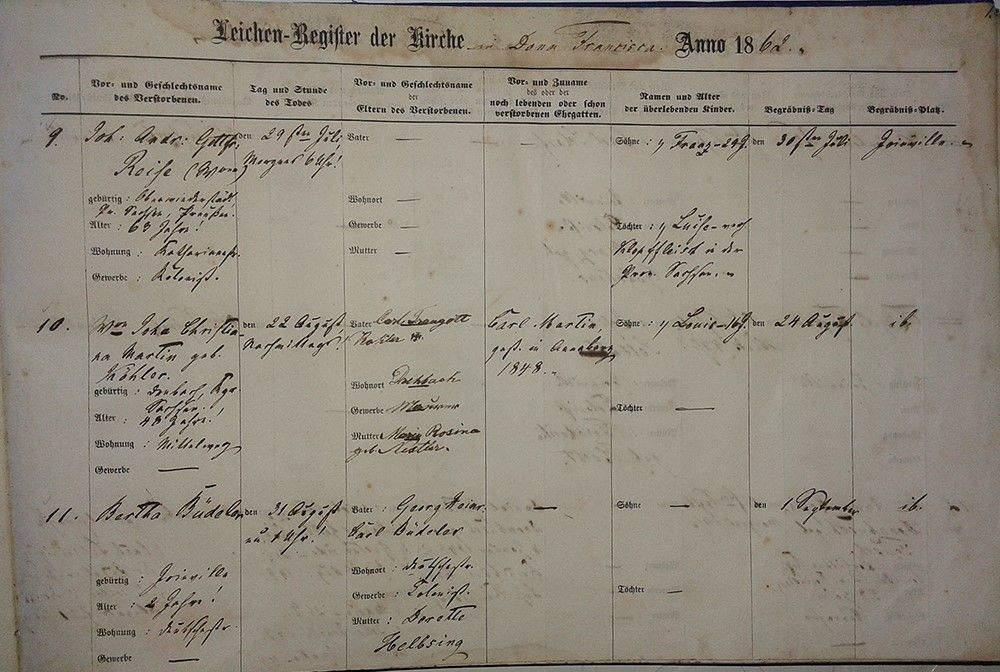 Leichen-Register der Kirche in Dona Francisca. Anno 1862.
No.
Vor- und Geschlechtsname
des Verstorbenen.
Tag und Stunde
des Todes
Vor- und Geschlechtsname
der
Eltern des Verstorbenen.
Vor- und Zuname
des oder der
noch lebenden oder schon
verstorbenen Ehegatten.
Namen und Alter
der überlebenden Kinder.
Begräbniß-Tag
Begräbniß-Platz.
9.
Joh: Andr: Gottfr.
Reise
gebürtig :
Pr. Sachsen, Preußen.
Alter : 63 Jahre!
Wohnung : Katharinenstr.
Gewerbe : Kolonist.
den 29sten Juli
Morgens 6 Uhr!
Vater —
Wohnort —
Gewerbe —
Mutter —
—
Söhne : 1, Franz - 29 J.
Töchter : 1, Luise -
in der
Prov. Sachsen.
den 30sten Juli
Joinville.
10.
Joha Christia-
na Martin geb.
Köhler.
gebürtig : Kgr.
Sachsen!
Alter : 48 Jahre!
Wohnung : Mittelweg
Gewerbe —
den 22 August,
Nachmittags!
Vater Carl Traugott
Wohnort
Gewerbe Maurer
Mutter Maria Rosina
geb.
Carl Martin,
gest. in Annaberg
1848.
Söhne : 1, Louis - 16 J.
Töchter —
den 24 August.
ib.
11.
Bertha Büdeler
gebürtig : Joinville
Alter : 2 Jahre!
Wohnung : Deutschestr.
Gewerbe —
den 31 August
Uhr!
Vater : Georg Heinr.
Carl Büdeler
Wohnort : Deutschestr.
Gewerbe : Colonist.
Mutter : Dorette
Helbsing
—
Söhne —
Töchter —
den 1. September
ib.